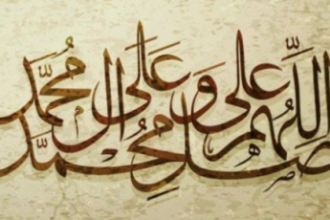 اللهم صل على محمد وعلى آل محمد